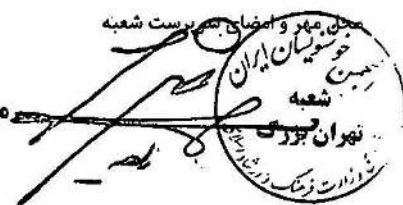 محل مهر و امضای سرپرست شعبه
خوشنویسان ایران
شعبه
تهران بزرگ
وزارت فرهنگ و ارشاد اسلامی